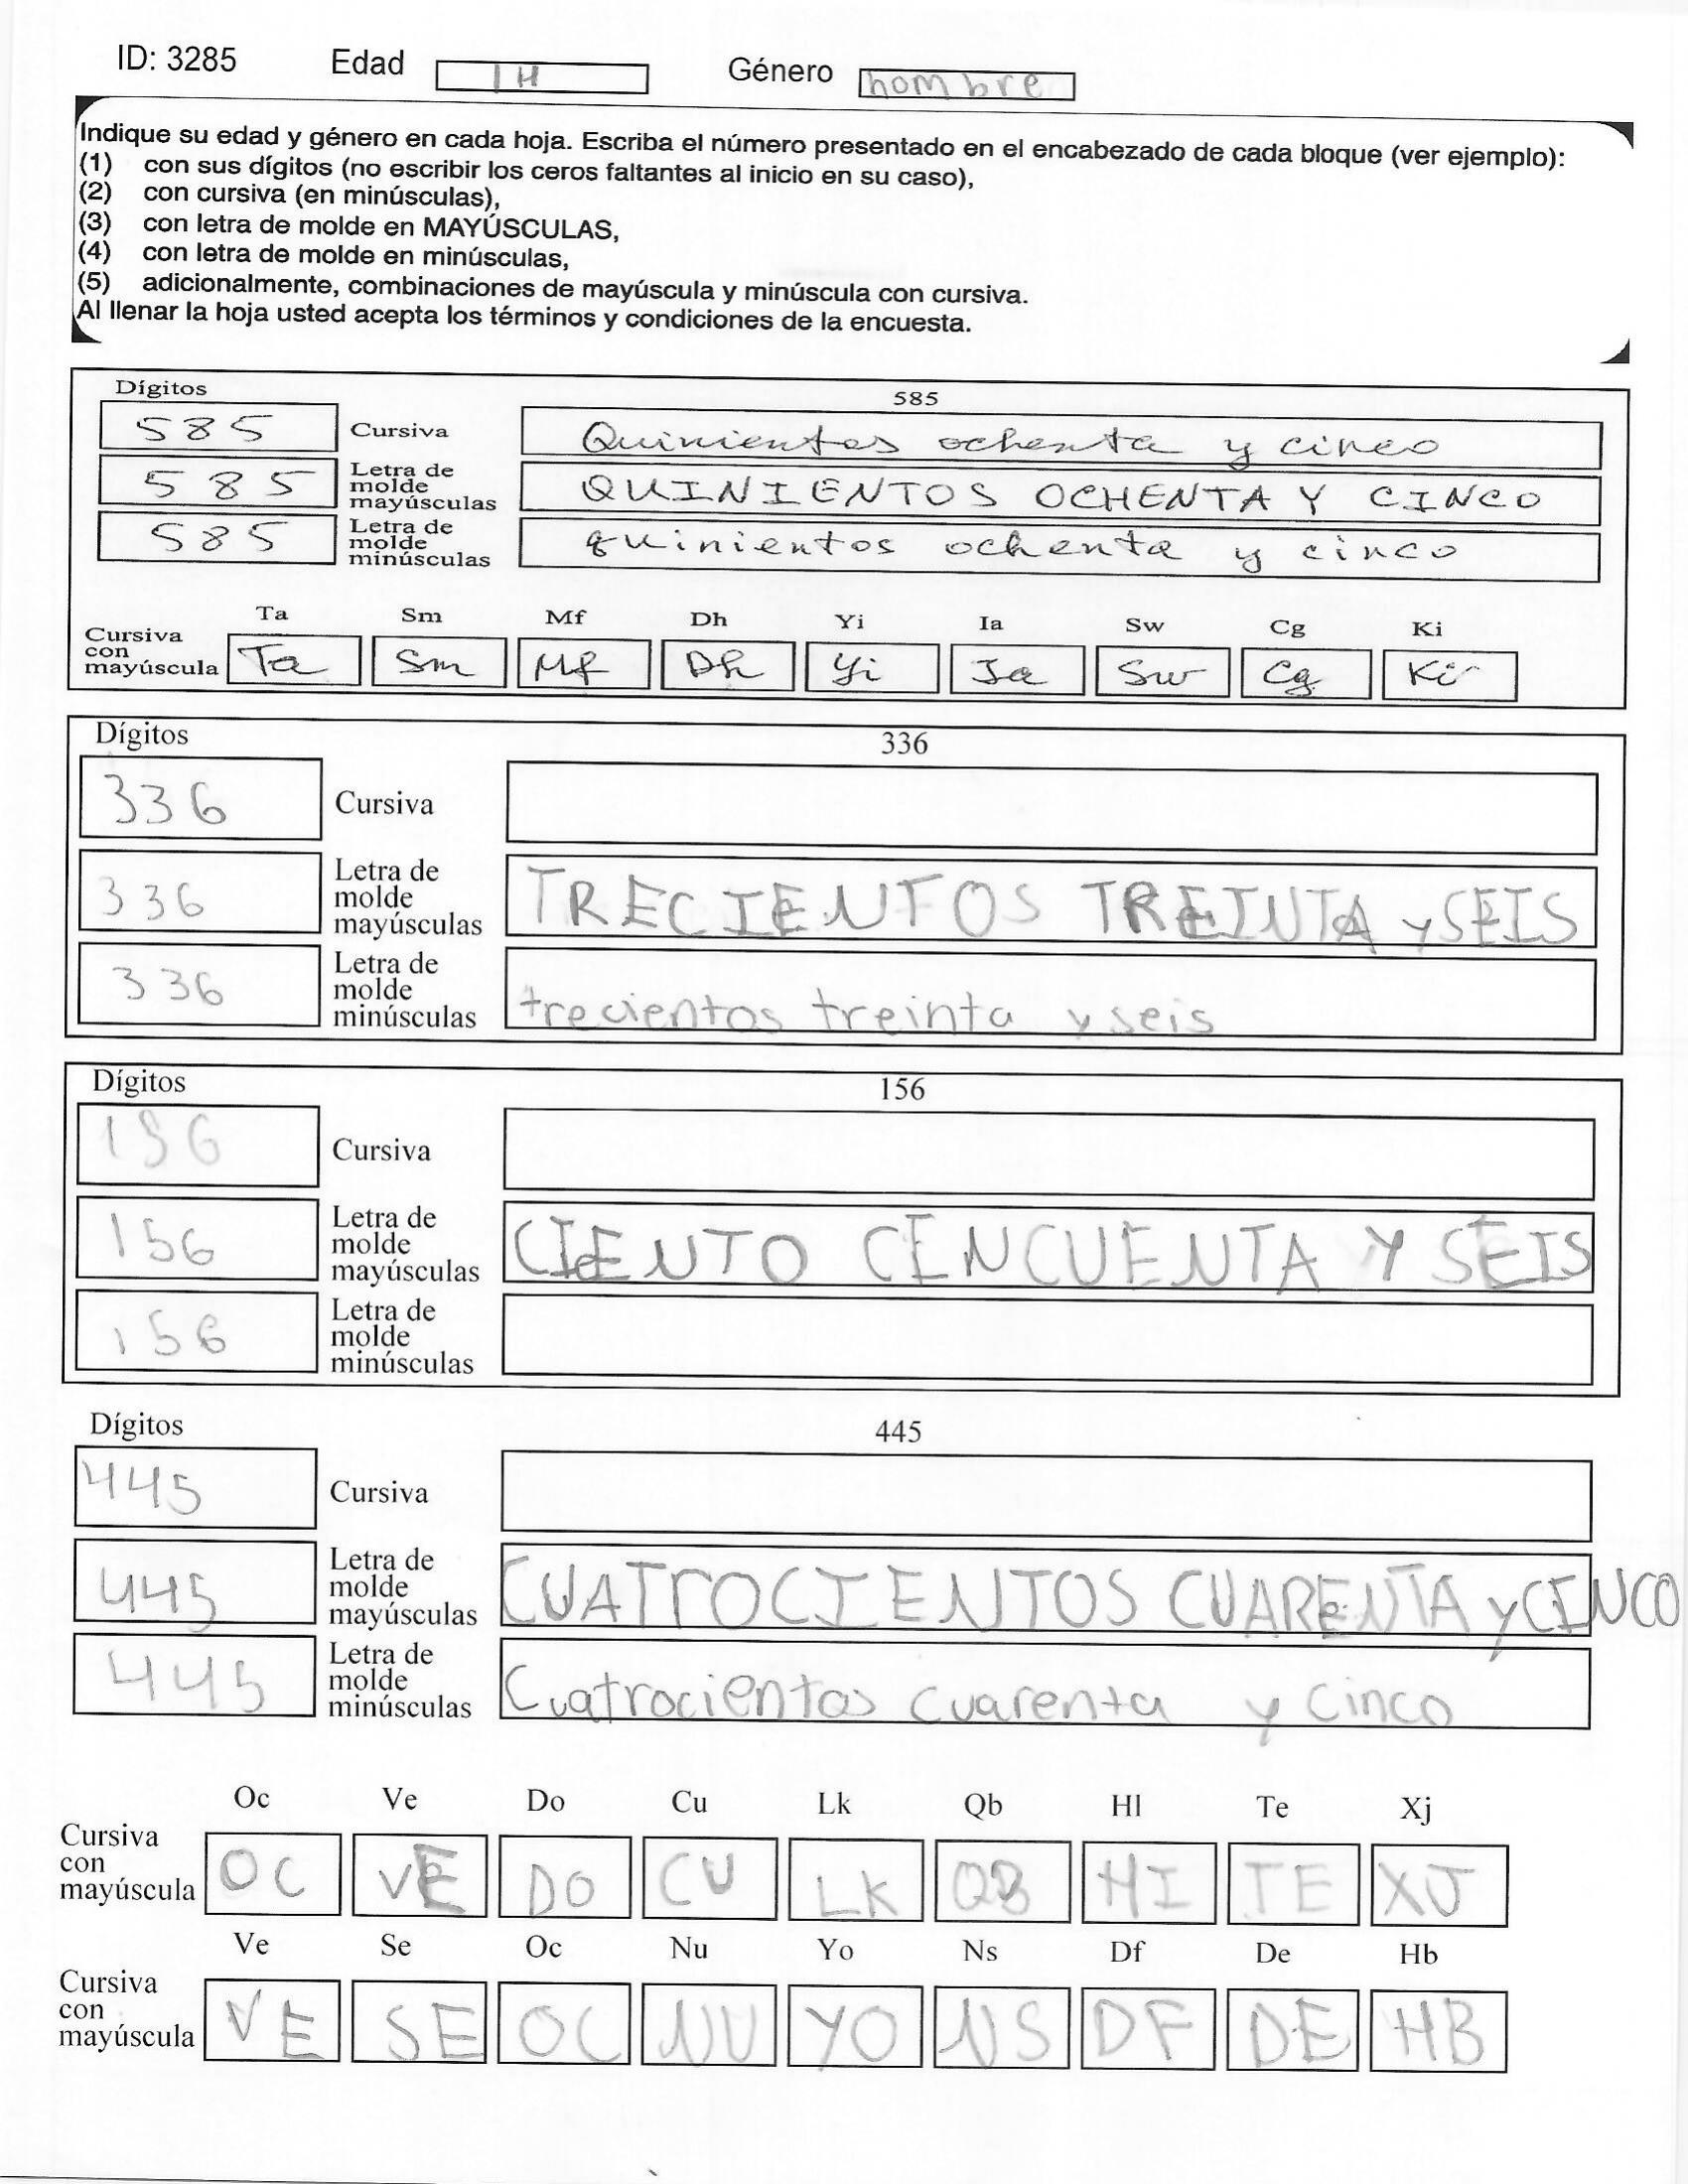 ID: 3285 Edad 14 Género hombre
Indique su edad y género en cada hoja. Escriba el número presentado en el encabezado de cada bloque (ver ejemplo):
(1) con sus dígitos (no escribir los ceros faltantes al inicio en su caso),
(2) con cursiva (en minúsculas),
(3) con letra de molde en MAYÚSCULAS,
(4) con letra de molde en minúsculas,
(5) adicionalmente, combinaciones de mayúscula y minúscula con cursiva.
Al llenar la hoja usted acepta los términos y condiciones de la encuesta.
Dígitos 585
585 Cursiva Quinientos ochenta y cinco
585 Letra de molde mayúsculas QUINIENTOS OCHENTA Y CINCO
585 Letra de molde minúsculas quinientos ochenta y cinco
Ta Sm Mf Dh Yi Ia Sw Cg Ki
Cursiva con mayúscula Ta Sm Mf Dh Yi Ia Sw Cg Ki
Dígitos 336
336 Cursiva
336 Letra de molde mayúsculas TRECIENTOS TREINTA y SEIS
336 Letra de molde minúsculas trecientos treinta y seis
Dígitos 156
156 Cursiva
156 Letra de molde mayúsculas CIENTO CINCUENTA Y SEIS
156 Letra de molde minúsculas
Dígitos 445
445 Cursiva
445 Letra de molde mayúsculas CUATROCIENTOS CUARENTA y CINCO
445 Letra de molde minúsculas Cuatrocientos cuarenta y cinco
Oc Ve Do Cu Lk Qb Hl Te Xj
Cursiva con mayúscula OC VE DO CU LK QB HI TE XJ
Ve Se Oc Nu Yo Ns Df De Hb
Cursiva con mayúscula VE SE OC NU YO NS DF DE HB